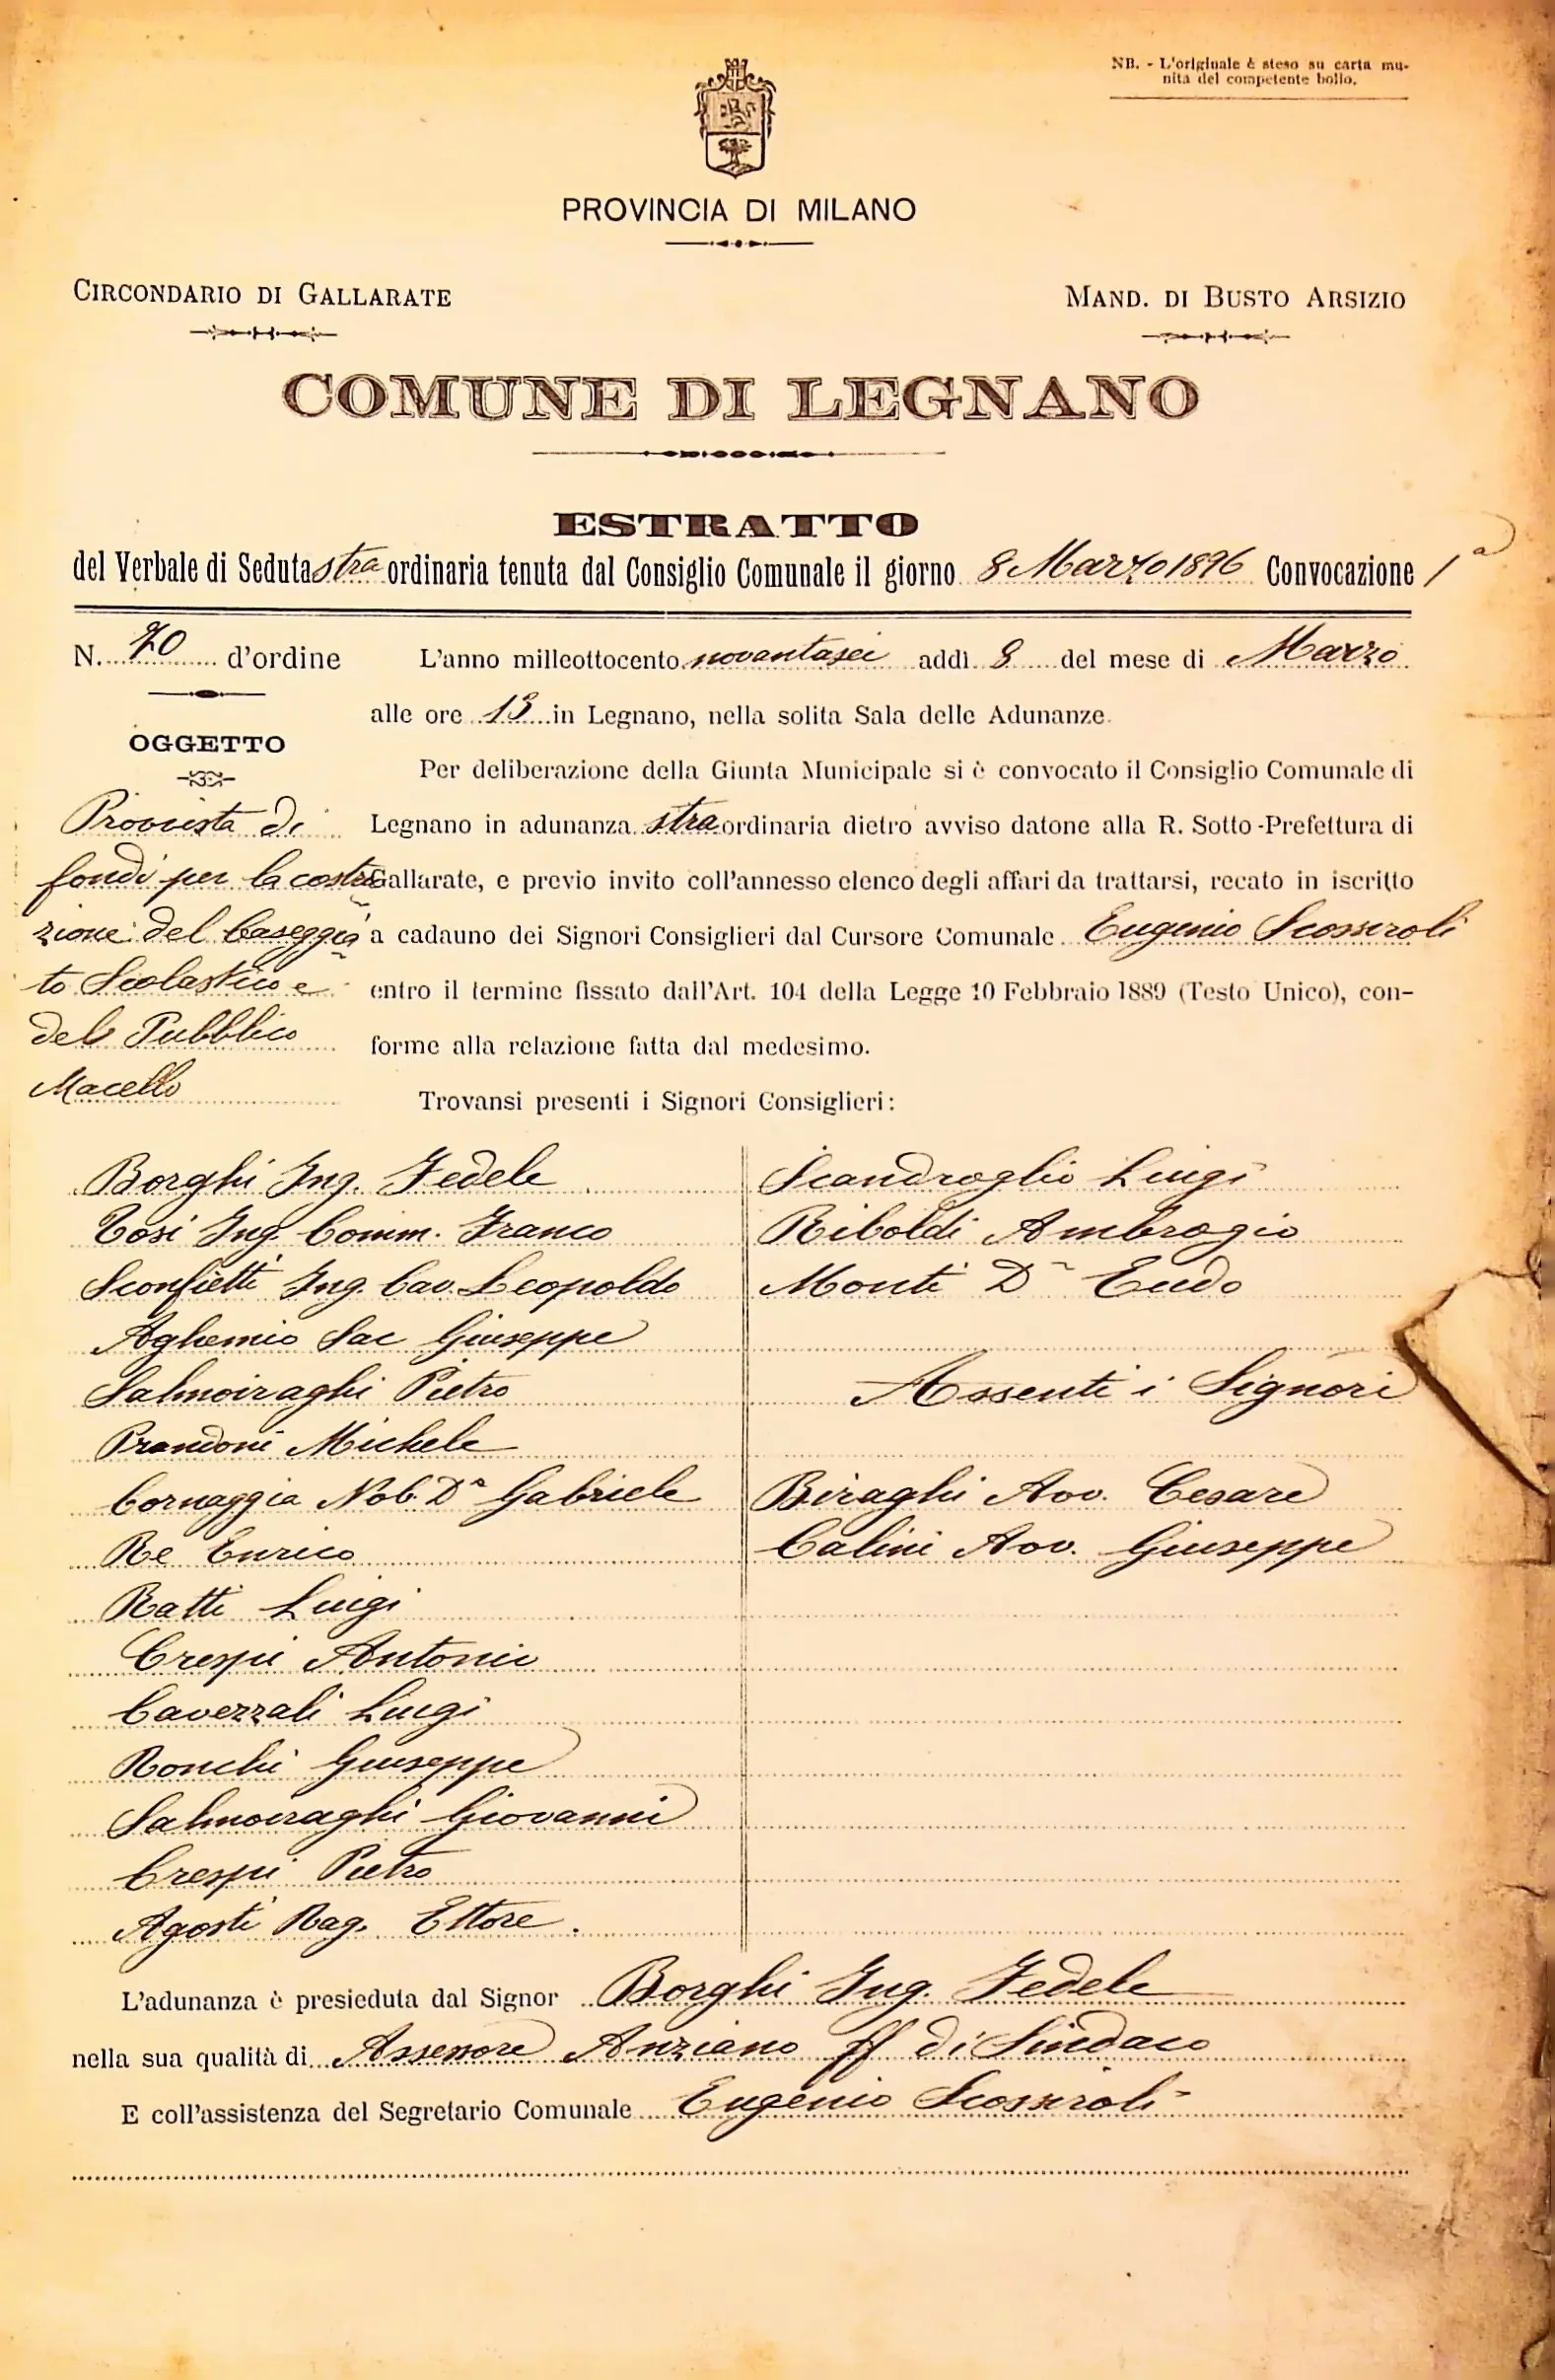 NB. - L'originale è steso su carta mu-
nita del competente bollo.
PROVINCIA DI MILANO
CIRCONDARIO DI GALLARATE
MAND. DI BUSTO ARSIZIO
COMUNE DI LEGNANO
ESTRATTO
del Verbale di Seduta straordinaria tenuta dal Consiglio Comunale il giorno 8 Marzo 1896 Convocazione 1ª
N. 20 d'ordine
OGGETTO
Provvista di
fondi per la costru
zione del Caseggia
to Scolastico e
del Pubblico
Macello
L'anno milleottocento novantasei addì 8 del mese di Marzo
alle ore 13 in Legnano, nella solita Sala delle Adunanze.
Per deliberazione della Giunta Municipale si è convocato il Consiglio Comunale di
Legnano in adunanza straordinaria dietro avviso datone alla R. Sotto-Prefettura di
Gallarate, e previo invito coll'annesso elenco degli affari da trattarsi, recato in iscritto
a cadauno dei Signori Consiglieri dal Cursore Comunale Eugenio
entro il termine fissato dall'Art. 104 della Legge 10 Febbraio 1889 (Testo Unico), con-
forme alla relazione fatta dal medesimo.
Trovansi presenti i Signori Consiglieri:
Borghi Ing. Fedele
Tosi Ing. Comm. Franco
Sconfietti Ing. Cav. Leopoldo
Aghemio Sac Giuseppe
Salmoiraghi Pietro
Prandoni Michele
Cornaggia Nob. Dr Gabriele
Re Enrico
Ratti Luigi
Crespi Antonio
Cavezzali Luigi
Ronchi Giuseppe
Salmoiraghi Giovanni
Crespi Pietro
Agosti Rag. Ettore.
Scandroglio Luigi
Riboldi Ambrogio
Monti Dr
Assenti i Signori
Biraghi Avv. Cesare
Calini Avv. Giuseppe
L'adunanza è presieduta dal Signor Borghi Ing. Fedele
nella sua qualità di Assessore Anziano ff di Sindaco
E coll'assistenza del Segretario Comunale Eugenio